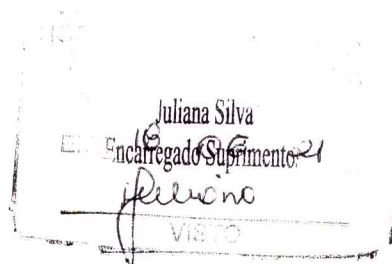 Juliana Silva
16 06 21
Encarregado Suprimento
Juliana
VISTO